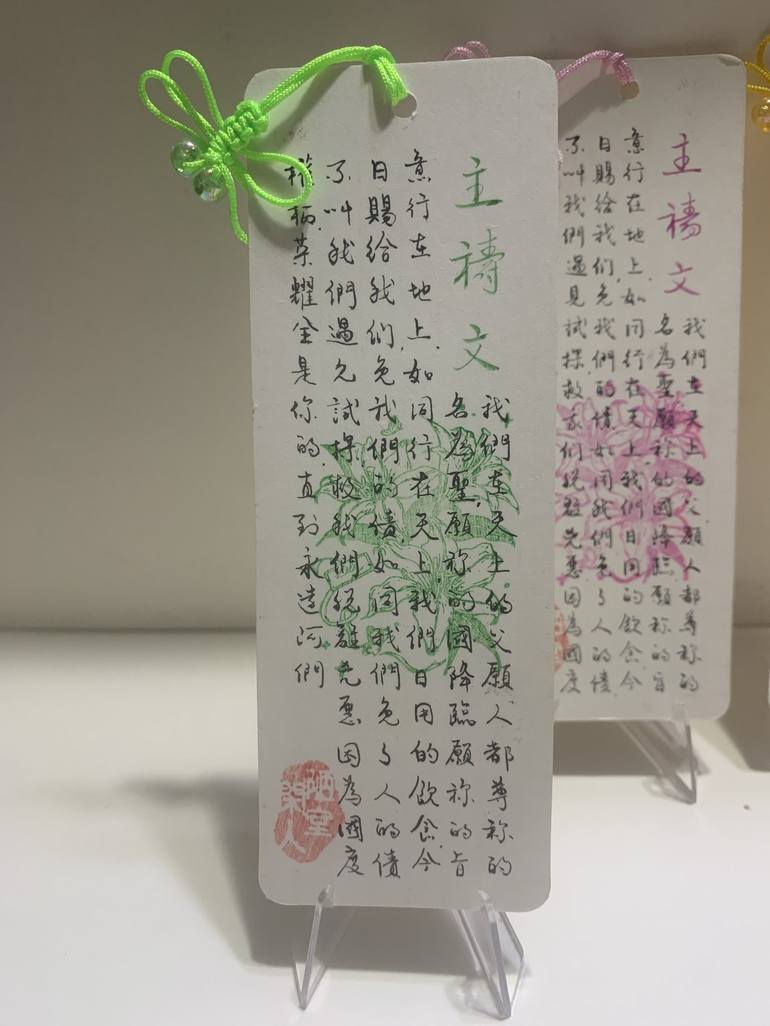 主禱文
我們在天上的父願人都尊祢的
名為聖,願祢的國降臨願祢的旨
意行在地上,如同行在天上,我們日用的飲食,今
日賜給我们,免我們的債,如同我們免了人的債
不叫我們遇见試探救我們脫離兇惡因為國度
權柄荣耀全是你的,直到永遠阿們
主禱文
我們在天上的父願人都尊祢的
名為聖願祢的國降臨願祢的旨
意行在地上,如同行在天上我們日用的飲食今
日賜給我们,免我們的債如同我們免了人的債
不叫我們遇見試探救我们脫離兇惡因為國度